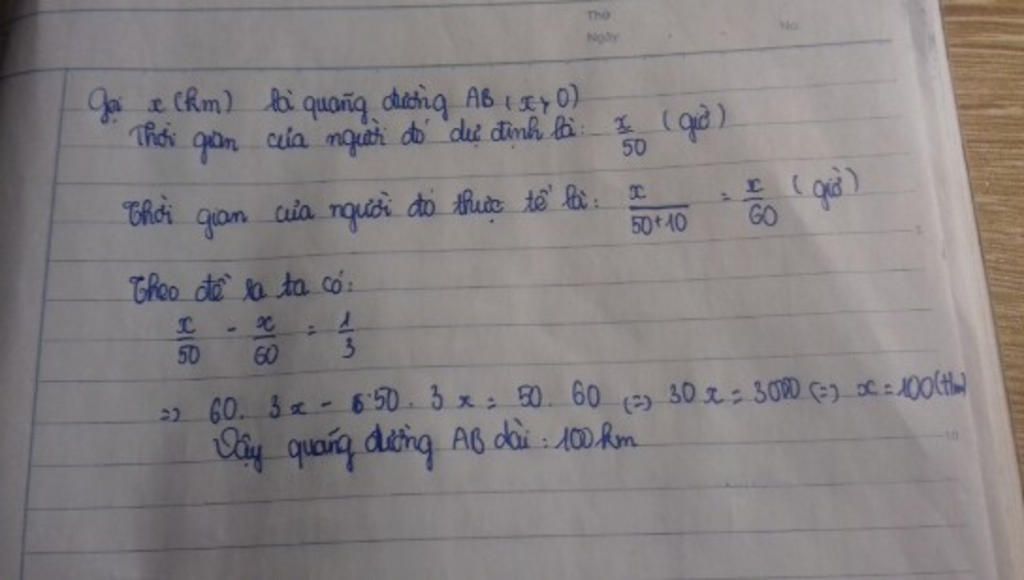 Thứ
No.
Ngày
Gọi x (km) là quãng đường AB (x > 0)
Thời gian của người đó dự định là: x/50 (giờ)
Thời gian của người đó thực tế là: x/(50+10) = x/60 (giờ)
Theo đề ra ta có:
x/50 - x/60 = 1/3
=> 60. 3x - 50. 3x = 50. 60 (=) 30x = 3000 (=) x = 100 (km)
Vậy quãng đường AB dài: 100 km
10